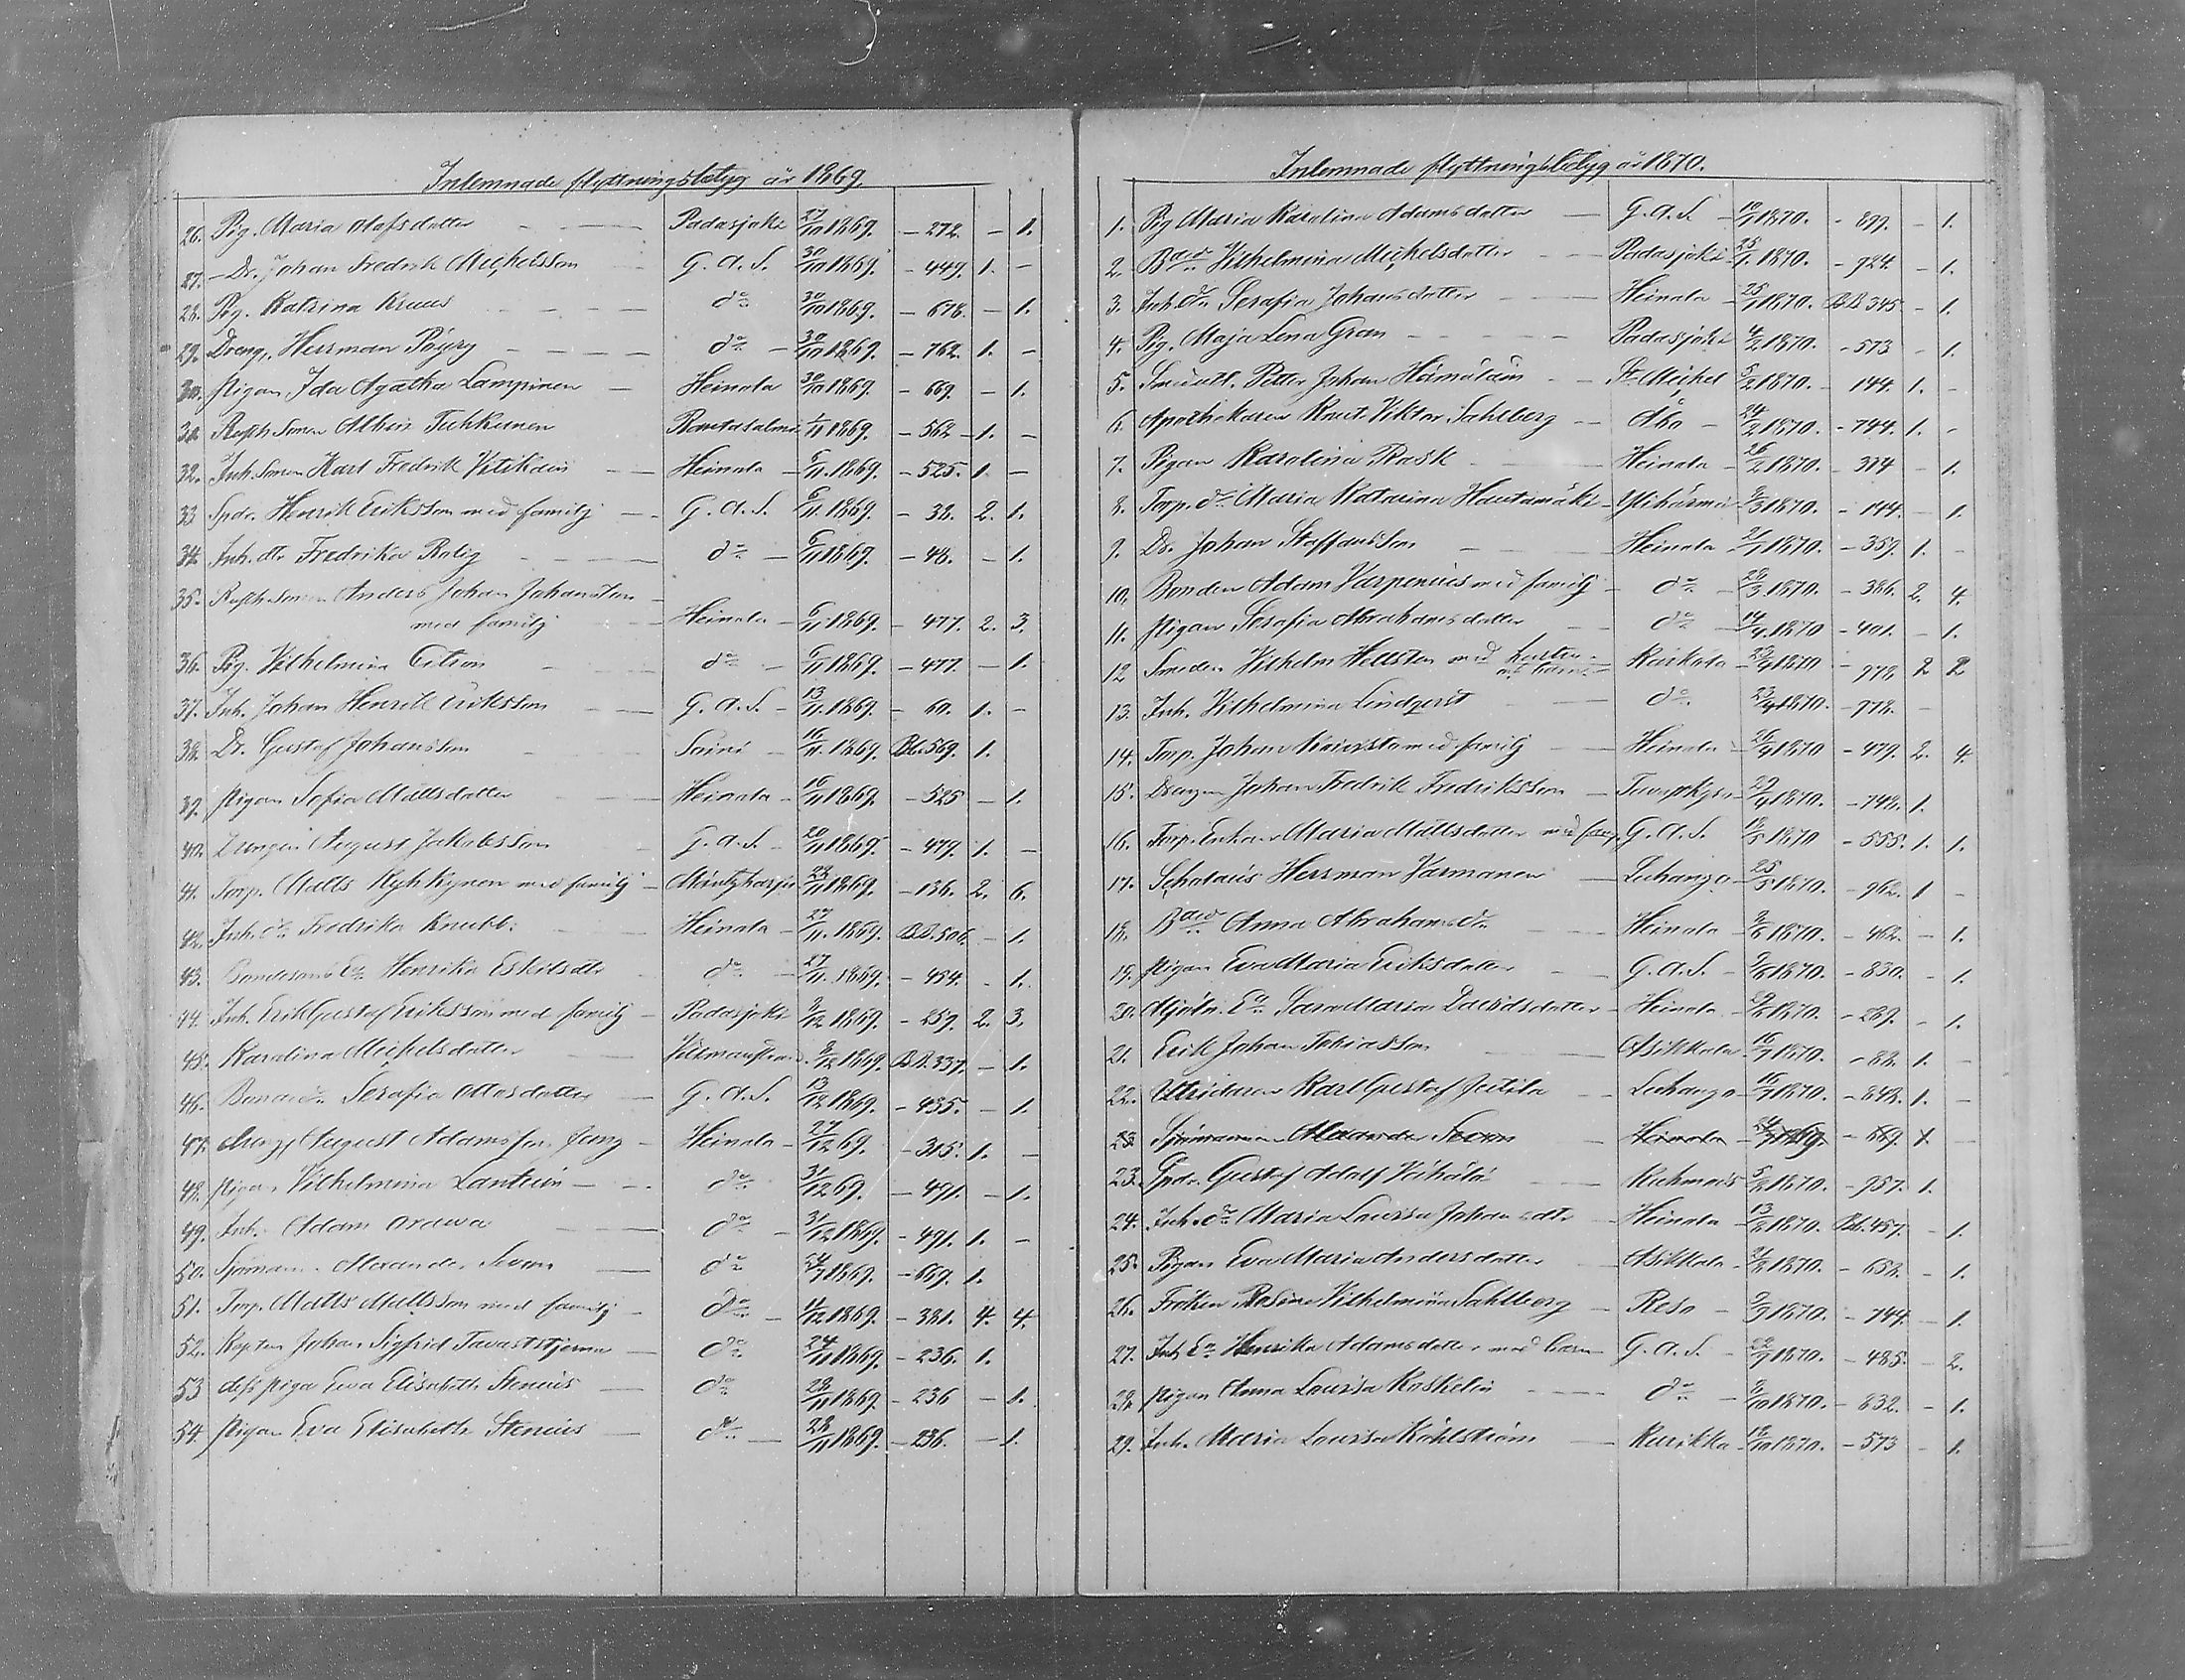 Inlemnade flyttningsbetyg år 1869.
26. Pig. Maria Mafsdotter — Padasjoki 27/10 1869. — 272. — 1.
27. Dr. Johan Fredrik Michelsson G. A. S. 30/10 1869. — 449. 1. —
28. Pig. Katrina Kruus do 30/10 1869. — 678. — 1.
29. Dreng. Herrman Pöyry do — 30/10 1869. — 762. 1. —
30. Pigan Ida Agatha Lampinen — Heinola 30/10 1869. — 69. — 1.
31. Albin Tuhkunen Rantasalmi 1/11 1869. — 562 — 1. —
32. Inh. Sonen Karl Fredrik Heinola — 6/11 1869. — 525. 1. —
33 Spdr. Henrik Eriksson med familj — G. A. S. 6/11 1869. — 38. 2. 1.
34. Inh. dtr Fredrika Rolig do — 6/11 1869. — 48. — 1.
35. Anders Johan Johansson
med familj Heinola — 6/11 1869. — 477. 2. 3.
36. Pig. Vilhelmina do — 6/11 1869. — 477. — 1.
37. Inh. Johan Henrik Eriksson — G. A. S. — 13/11 1869. — 60. 1. —
38. Dr. Gustaf Johansson Saini — 16/11 1869. Bb. 569. 1.
39. Pigan Sofia Mattsdotter Heinola — 16/11 1869. — 525 — 1.
40. Drengen August Jakobsson G. A. S. — 20/11 1869. — 479. 1. —
41. Torp. Matts Kyhkynen med familj — Mäntyharju 23/11 1869. — 136. 2. 6.
42. Inh. dr Fredrika Knubb. Heinola — 27/11 1869. BB. 506. — 1.
43. Bondesons Ea Henrika Eskilsdtr do — 27/11 1869. — 454. — 1.
44. Inh. Erik Gustaf Eriksson med familj — Padasjoki 9/12 1869. — 259. 2. 3.
45. Karolina Michelsdotter Villmanstrand. 9/12 1869. BB. 337. — 1.
46. Bonde dr Serafia Mattsdotter G. A. S. 13/12 1869. — 435. — 1.
47. Dreng August Adamsson Jong — Heinola — 27/12 69. — 315. 1. —
48. Pigan Vilhelmina — do 31/12 69. — 491. — 1.
49. Inh. Adam Orawa do — 31/12 1869. — 491. 1. —
50. Sjöman Alexander Sevon do 24/7 1869. — 669. 1.
51. Torp. Matts Mattsson med familj — do — 4/12 1869. — 381. 4. 4.
52. Kapten Johan Sigfrid Tavaststjerna — do 24/11 1869. — 236. 1.
53 dess piga Eva Elisabeth Stenius — do 28/11 1869. — 236 — 1.
54. Pigan Eva Elisabeth Stenius — do — 28/11 1869. — 236. — 1.
Inlemnade flyttningsbetyg år 1870.
1. Pig Maria Karolina Adamsdotter — G. A. S. — 10/1 1870. — 899. — 1.
2. Vilhelmina Michelsdotter — Padasjoki 25/1 1870. — 924. — 1.
3. Inh. dr Serafia Johansdotter — Heinola — 25/1 1870. BB 345 — 1.
4. Pig. Maja Lena Gran — Padasjoki 4/2 1870. — 573 — 1.
5. Petter Johan Hämäläin — St. Michel 5/2 1870. — 144. 1. —
6. Apothekaren Knut Viktor Sahlberg — Åbo — 24/2 1870. — 744. 1. —
7. Pigan Karolina Rask Heinola — 26/2 1870. — 314 — 1.
8. Torp. dr Maria Katarina Hautamäki — Ylihärmä 9/3 1870. — 144. — 1.
9. Dr. Johan Staffansson — Heinola 21/1 1870. — 359. 1. —
10. Bonden Adam Varpenius med familj — do — 28/3 1870. — 386. 2. 4.
11. Pigan Serafia Abrahamsdotter — do — 14/4 1870 — 401. — 1.
12 Smeden Vilhelm Hellsten med hustru
och barn — Kärkölä — 23/4 1870 — 778. 2 2
13. Inh. Vilhelmina Lindqvist — do 23/4 1870. — 778. —
14. Torp. Johan med familj — Heinola 26/4 1870 — 479. 2. 4.
15. Drengen Johan Fredrik Fredriksson — 29/4 1870. — 748. 1.
16. Torp. Enkan Maria Mattsdotter med fam. G. A. S. 18/5 1870 — 555. 1. 1.
17. Herrman Varmanen — Luhanga — 25/5 1870. — 962. 1 —
18. Anna Abrahamsdr Heinola — 9/6 1870. — 462. — 1.
19. Pigan Eva Maria Eriksdotter — G. A. S. — 9/6 1870. — 830. — 1.
20. Mjöln. Ea Sara Maria Davidsdotter — Heinola — 1870. — 289. — 1.
21. Erik Johan Tobiasson — Asikkala 16/7 1870. — 82. 1. —
22. Karl Gustaf Jutila — Luhanga — 16/7 1870. — 848. 1. —
23. Sjömannen Alexander Sevon — Heinola — 24/7 1869. — 669. 1. —
23. Spdr. Gustaf Adolf — 5/8 1870. — 957. 1.
24. Inh. dr Maria Lovisa Johansdtr — Heinola 13/8 1870. Bb. 457. — 1.
25. Pigan Eva Maria Andersdotter — Asikkala — 1870. — 652. — 1.
26. Fröken Rosina Vilhelmina Sahlberg — Reso — 9/9 1870. — 744. — 1.
27. Inh Ea Henrika Adamsdotter med barn — G. A. S. — 22/9 1870. — 485. — 2.
28. Pigan Anna Lovisa Koskelin — do — 9/10 1870. — 832. — 1.
29. Inh. Maria Lovisa Kohlström — Kurikka — 18/10 1870. — 573 — 1.